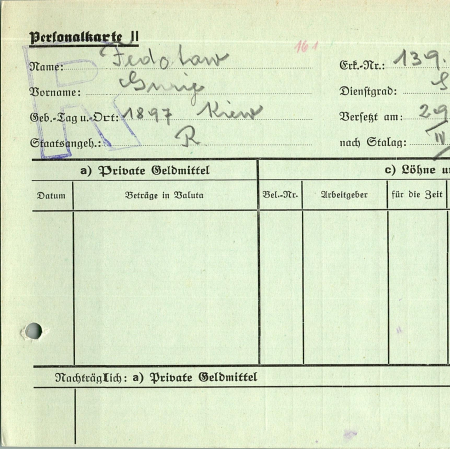 Personalkarte II
161
Name: Fedotow Erk.-Nr.: 139.
Vorname: Dienstgrad: S
Geb.-Tag u. Ort: 1897 Kiew Versetzt am: 29
Staatsangeh.: R nach Stalag: IV
R
a) Private Geldmittel c) Löhne u
Datum Beträge in Valuta Bel.-Nr. Arbeitgeber für die Zeit
Nachträglich: a) Private Geldmittel